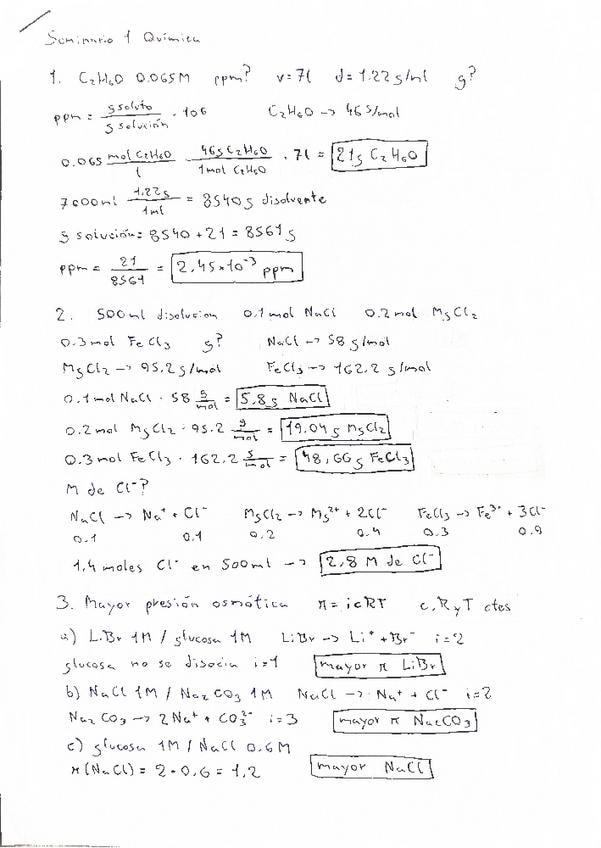 Seminario 1 Química
1. C₂H₆O 0.065M ppm? v=7l d=1.22g/ml g?
ppm = g soluto / g solución · 10⁶ C₂H₆O → 46g/mol
0.065 mol C₂H₆O / l 46g C₂H₆O / 1mol C₂H₆O · 7l = 21g C₂H₆O
7000ml 1.22g / 1ml = 8540g disolvente
g solución = 8540 + 21 = 8561g
ppm = 21 / 8561 = 2,45×10⁻³ ppm
2. 500ml disolucion 0.1mol NaCl 0.2mol MgCl₂
0.3mol FeCl₃ g? NaCl → 58g/mol
MgCl₂ → 95.2g/mol FeCl₃ → 162.2g/mol
0.1mol NaCl · 58 g/mol = 5,8g NaCl
0.2mol MgCl₂ · 95.2 g/mol = 19.04g MgCl₂
0.3mol FeCl₃ · 162.2 g/mol = 48,66g FeCl₃
M de Cl⁻?
NaCl → Na⁺ + Cl⁻ MgCl₂ → Mg²⁺ + 2Cl⁻ FeCl₃ → Fe³⁺ + 3Cl⁻
0.1 0.1 0.2 0.4 0.3 0.9
1,4 moles Cl⁻ en 500ml → 2,8 M de Cl⁻
3. Mayor presión osmótica π = icRT c, R y T ctes
a) LiBr 1M / glucosa 1M LiBr → Li⁺ + Br⁻ i=2
glucosa no se disocia i=1 mayor π LiBr
b) NaCl 1M / Na₂CO₃ 1M NaCl → Na⁺ + Cl⁻ i=2
Na₂CO₃ → 2Na⁺ + CO₃²⁻ i=3 mayor π Na₂CO₃
c) glucosa 1M / NaCl 0.6M
π(NaCl) = 2·0,6 = 1,2 mayor NaCl